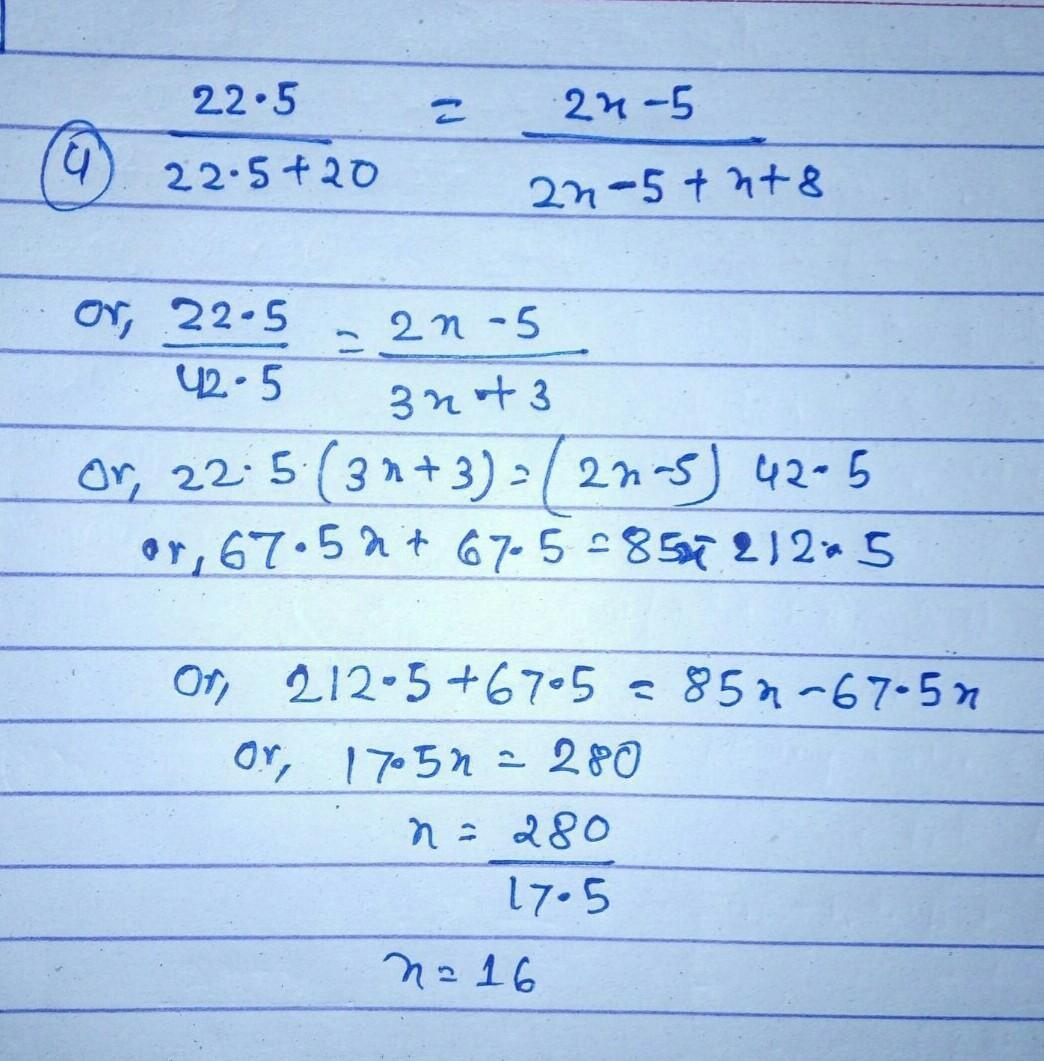 ④ 22·5 / 22·5+20 = 2x-5 / 2x-5+x+8
or, 22·5 / 42·5 = 2x-5 / 3x+3
or, 22·5(3x+3)=(2x-5) 42·5
or, 67·5x+ 67·5 = 85x- 212·5
or, 212·5+67·5 = 85x-67·5x
or, 17·5x = 280
x = 280 / 17·5
x=16